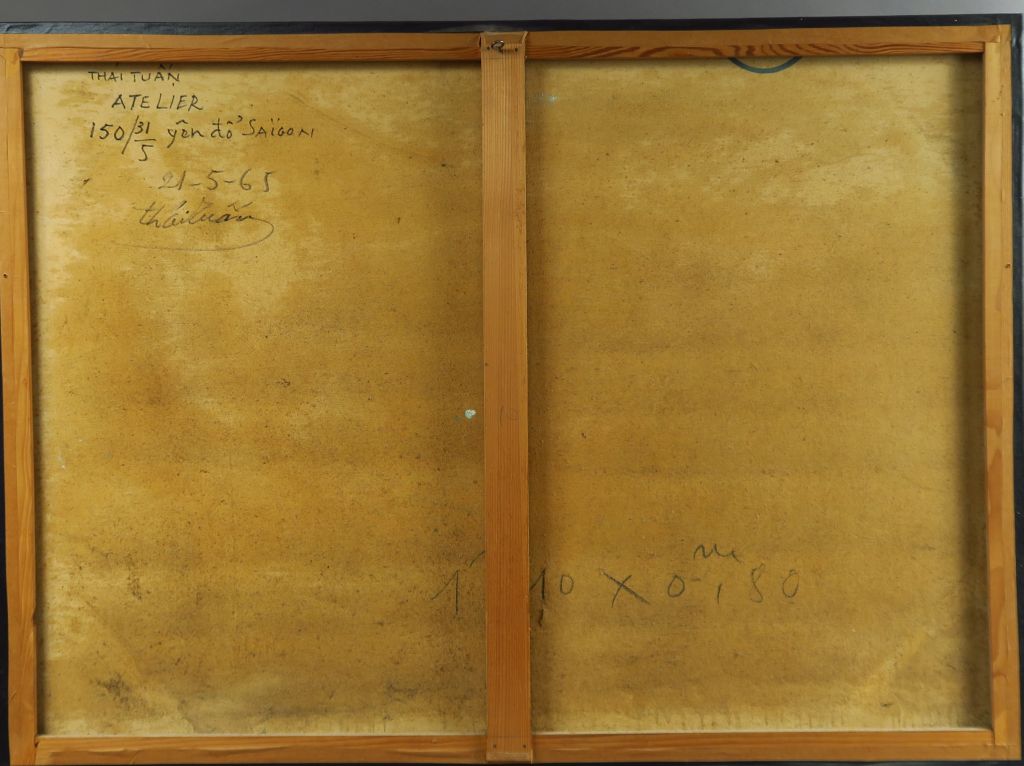 THÁI TUẤN
ATELIER
150/31/5 yên đổ SAÏGON
21-5-65
tháituấn
1 10 X 0m,80